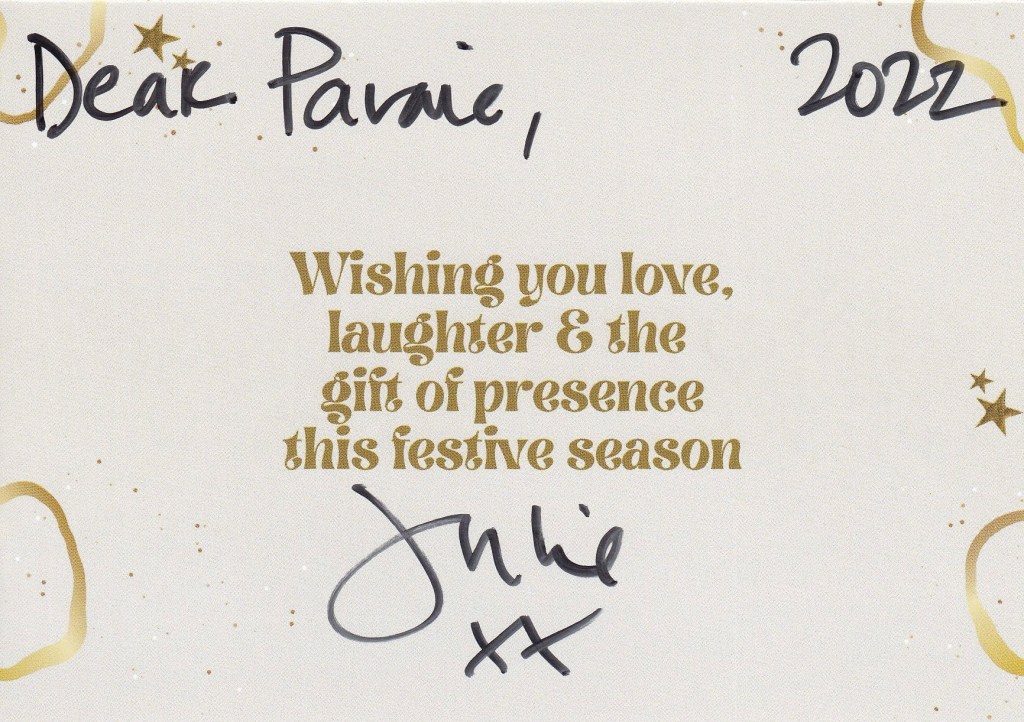 Dear Paraic, 2022
Wishing you love,
laughter & the
gift of presence
this festive season
Julie
xx